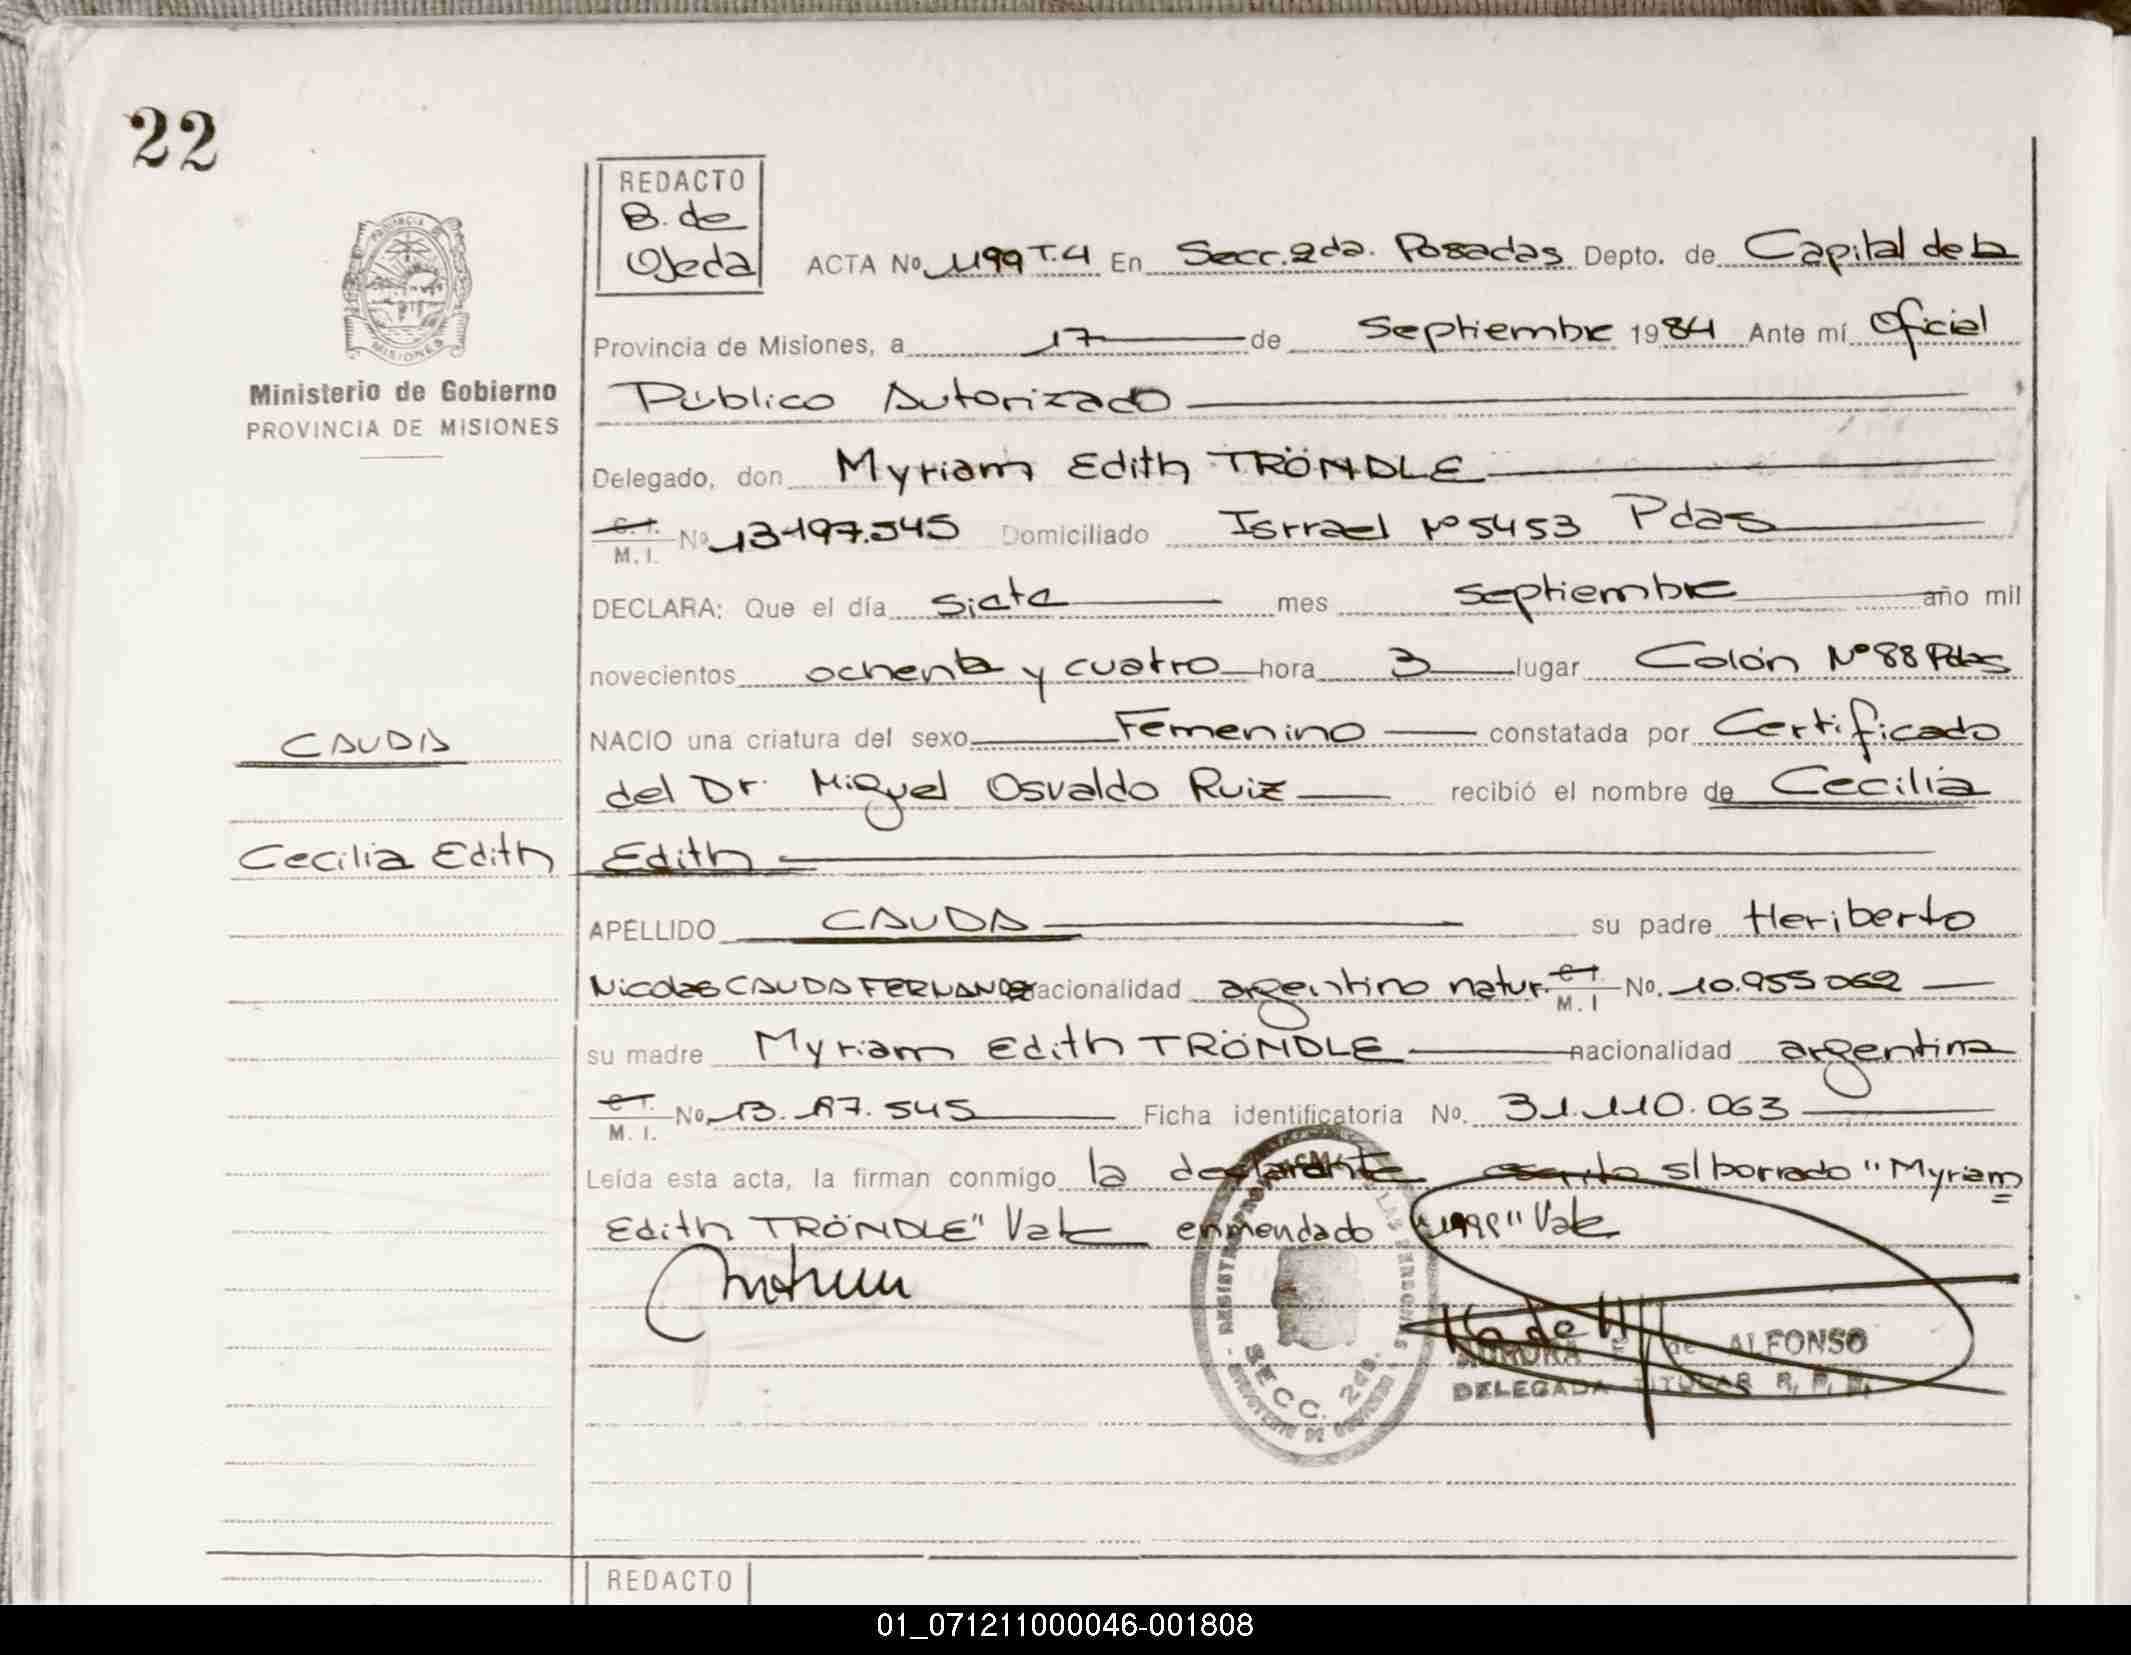 22
REDACTO
B. de
Ojeda
ACTA No 1199 T.4 En Secc. 2da. Posadas Depto. de Capital de la
PROVINCIA DE
MISIONES
Provincia de Misiones, a 17 de Septiembre 1984 Ante mí Oficial
Ministerio de Gobierno
PROVINCIA DE MISIONES
Público Autorizado
Delegado, don Myriam Edith TRÖNDLE
C.I. M.I. No 13.197.545 Domiciliado Isrrael Nº 5453 Pdas
DECLARA: Que el día siete mes septiembre año mil
novecientos ochenta y cuatro hora 3 lugar Colón Nº 88 Pdas
CAUDA
NACIO una criatura del sexo Femenino constatada por Certificado
del Dr. Miguel Osvaldo Ruiz recibió el nombre de Cecilia
Cecilia Edith
Edith
APELLIDO CAUDA su padre Heriberto
Nicolas CAUDA FERNANDEZ nacionalidad argentino natur. C.I. M.I No. 10.955062
su madre Myriam Edith TRÖNDLE nacionalidad argentina
C.I. M.I. No. 13.197.545 Ficha identificatoria No. 31.110.063
Leída esta acta, la firman conmigo la declarante s/borrado "Myriam
Edith TRÖNDLE" Vale enmendado "1199" Vale
SECC. 2da.
de ALFONSO
DELEGADA TITULAR R. P. P.
REDACTO
01_071211000046-001808